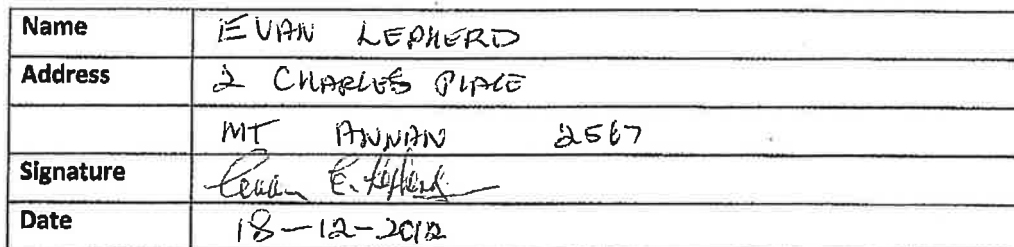 Name EVAN LEPHERD
Address 2 CHARLES PLACE
MT ANNAN 2567
Signature Evan E. Lepherd
Date 18-12-2012